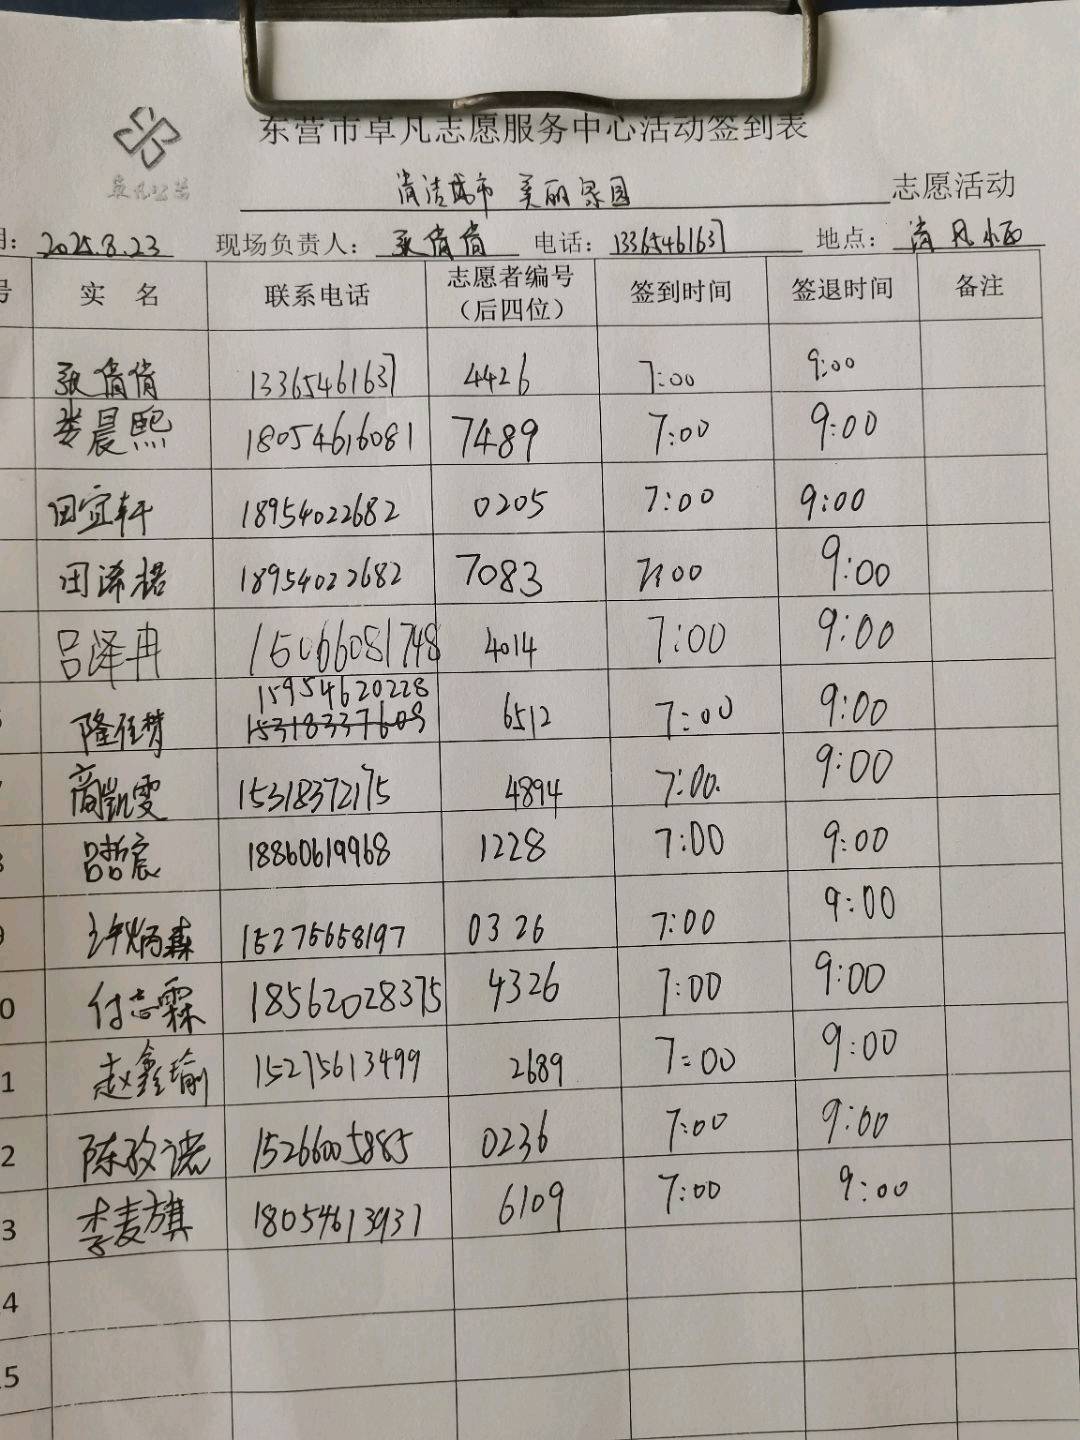 东营市卓凡志愿服务中心活动签到表
卓凡公益
清洁城市 美丽家园 志愿活动
期: 2025.8.23 现场负责人: 张倩倩 电话: 13365461637 地点: 清风小区
号 实 名 联系电话 志愿者编号（后四位） 签到时间 签退时间 备注
张倩倩 13365461637 4426 7:00 9:00
娄晨熙 18054616081 7489 7:00 9:00
田宜轩 18954022682 0205 7:00 9:00
田浠楉 18954022682 7083 7:00 9:00
吕泽冉 15066081748 4014 7:00 9:00
15954620228
隆佳梦 15318337609 6512 7:00 9:00
7 商凯雯 15318372175 4894 7:00. 9:00
8 吕哲宸 18860619968 1228 7:00 9:00
9 许炳森 15275658197 0326 7:00 9:00
0 付志霖 18562028375 4326 7:00 9:00
1 赵鑫瑜 15275613499 2689 7:00 9:00
2 陈孜诺 15266005885 0236 7:00 9:00
3 李麦旗 18054613931 6109 7:00 9:00
4
5